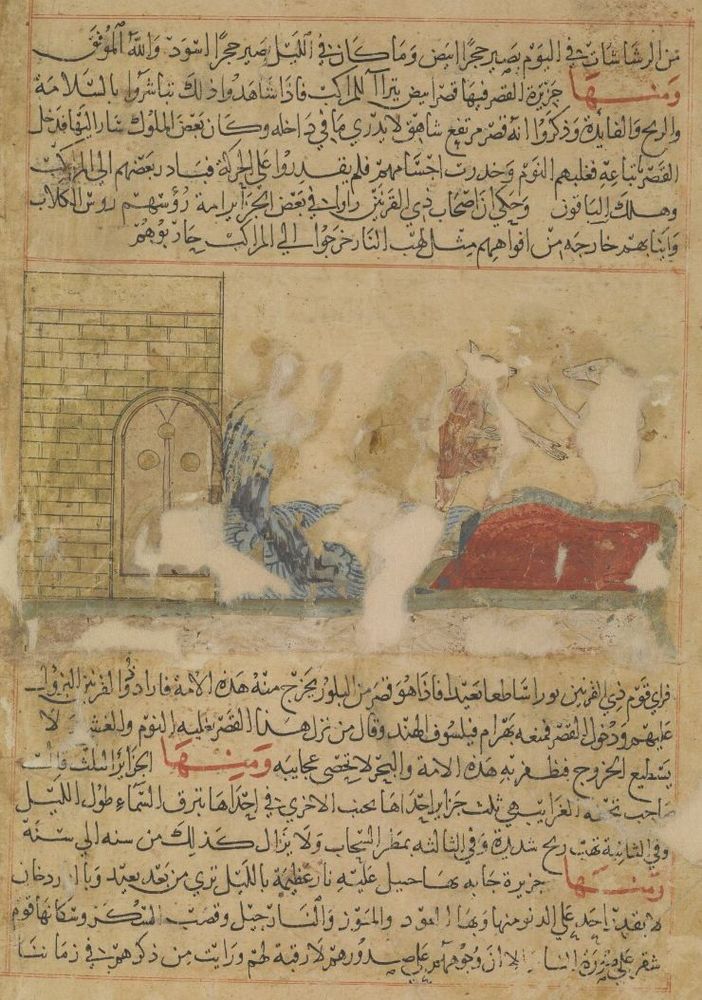 من الرشاشات في اليوم يصير حجرا ابيض وما كان في الليل يصير حجرا اسود والله الموفق
ومنها جزيرة القصر فيها قصر ابيض يتراآ للمراكب فاذا شاهدوا ذلك تباشروا بالسلامة
والربح والفايدة وذكروا انه قصر مرتفع شاهق لا يدري ما في داخله وكان بعض الملوك سار اليها فدخل
القصر باتباعه فغلبهم النوم وخدرت اجسامهم فلم يقدروا علي الحركة فبادر بعضهم الي المركب
وهلك الباقون وحكي ان اصحاب ذي القرنين راوا في بعض الجزاير امة رؤسهم روس الكلاب
وانيابهم خارجه من افواههم مثل لهب النار خرجوا الي المراكب حاربوهم
فراي قوم ذي القرنين نورا ساطعا بعيدا فاذا هو قصر من البلور يخرج منه هذه الامة فاراد ذو القرنين النزول
عليهم ودخول القصر فمنعه بهرام فيلسوف الهند وقال من نزل هذا القصر غلبه النوم والغشي ولا
يستطيع الخروج فتظفر به هذه الامة والبحر لا تحصي عجايبه ومنها الجزاير الثلث قالت
صاحب تحفة الغرايب هي ثلث جزاير احداها بجنب الاخري في احداها تبرق السماء طول الليل
وفي الثانية تهب ريح شديدة وفي الثالثه يمطر السحاب ولا يزال كذلك من سنه الي سنة
ومنها جزيرة جابه بها جبل عليه نار عظيمة بالليل تري من بعد بعيد وبالنهار دخان
لا يقدر احد علي الدنو منها وبها العود والموز والنارجيل وقصب السكر وسكانها قوم
شقر علي صورة الناس الا ان وجوههم علي صدورهم لا رقبة لهم ورايت من ذكرهم في زماننا